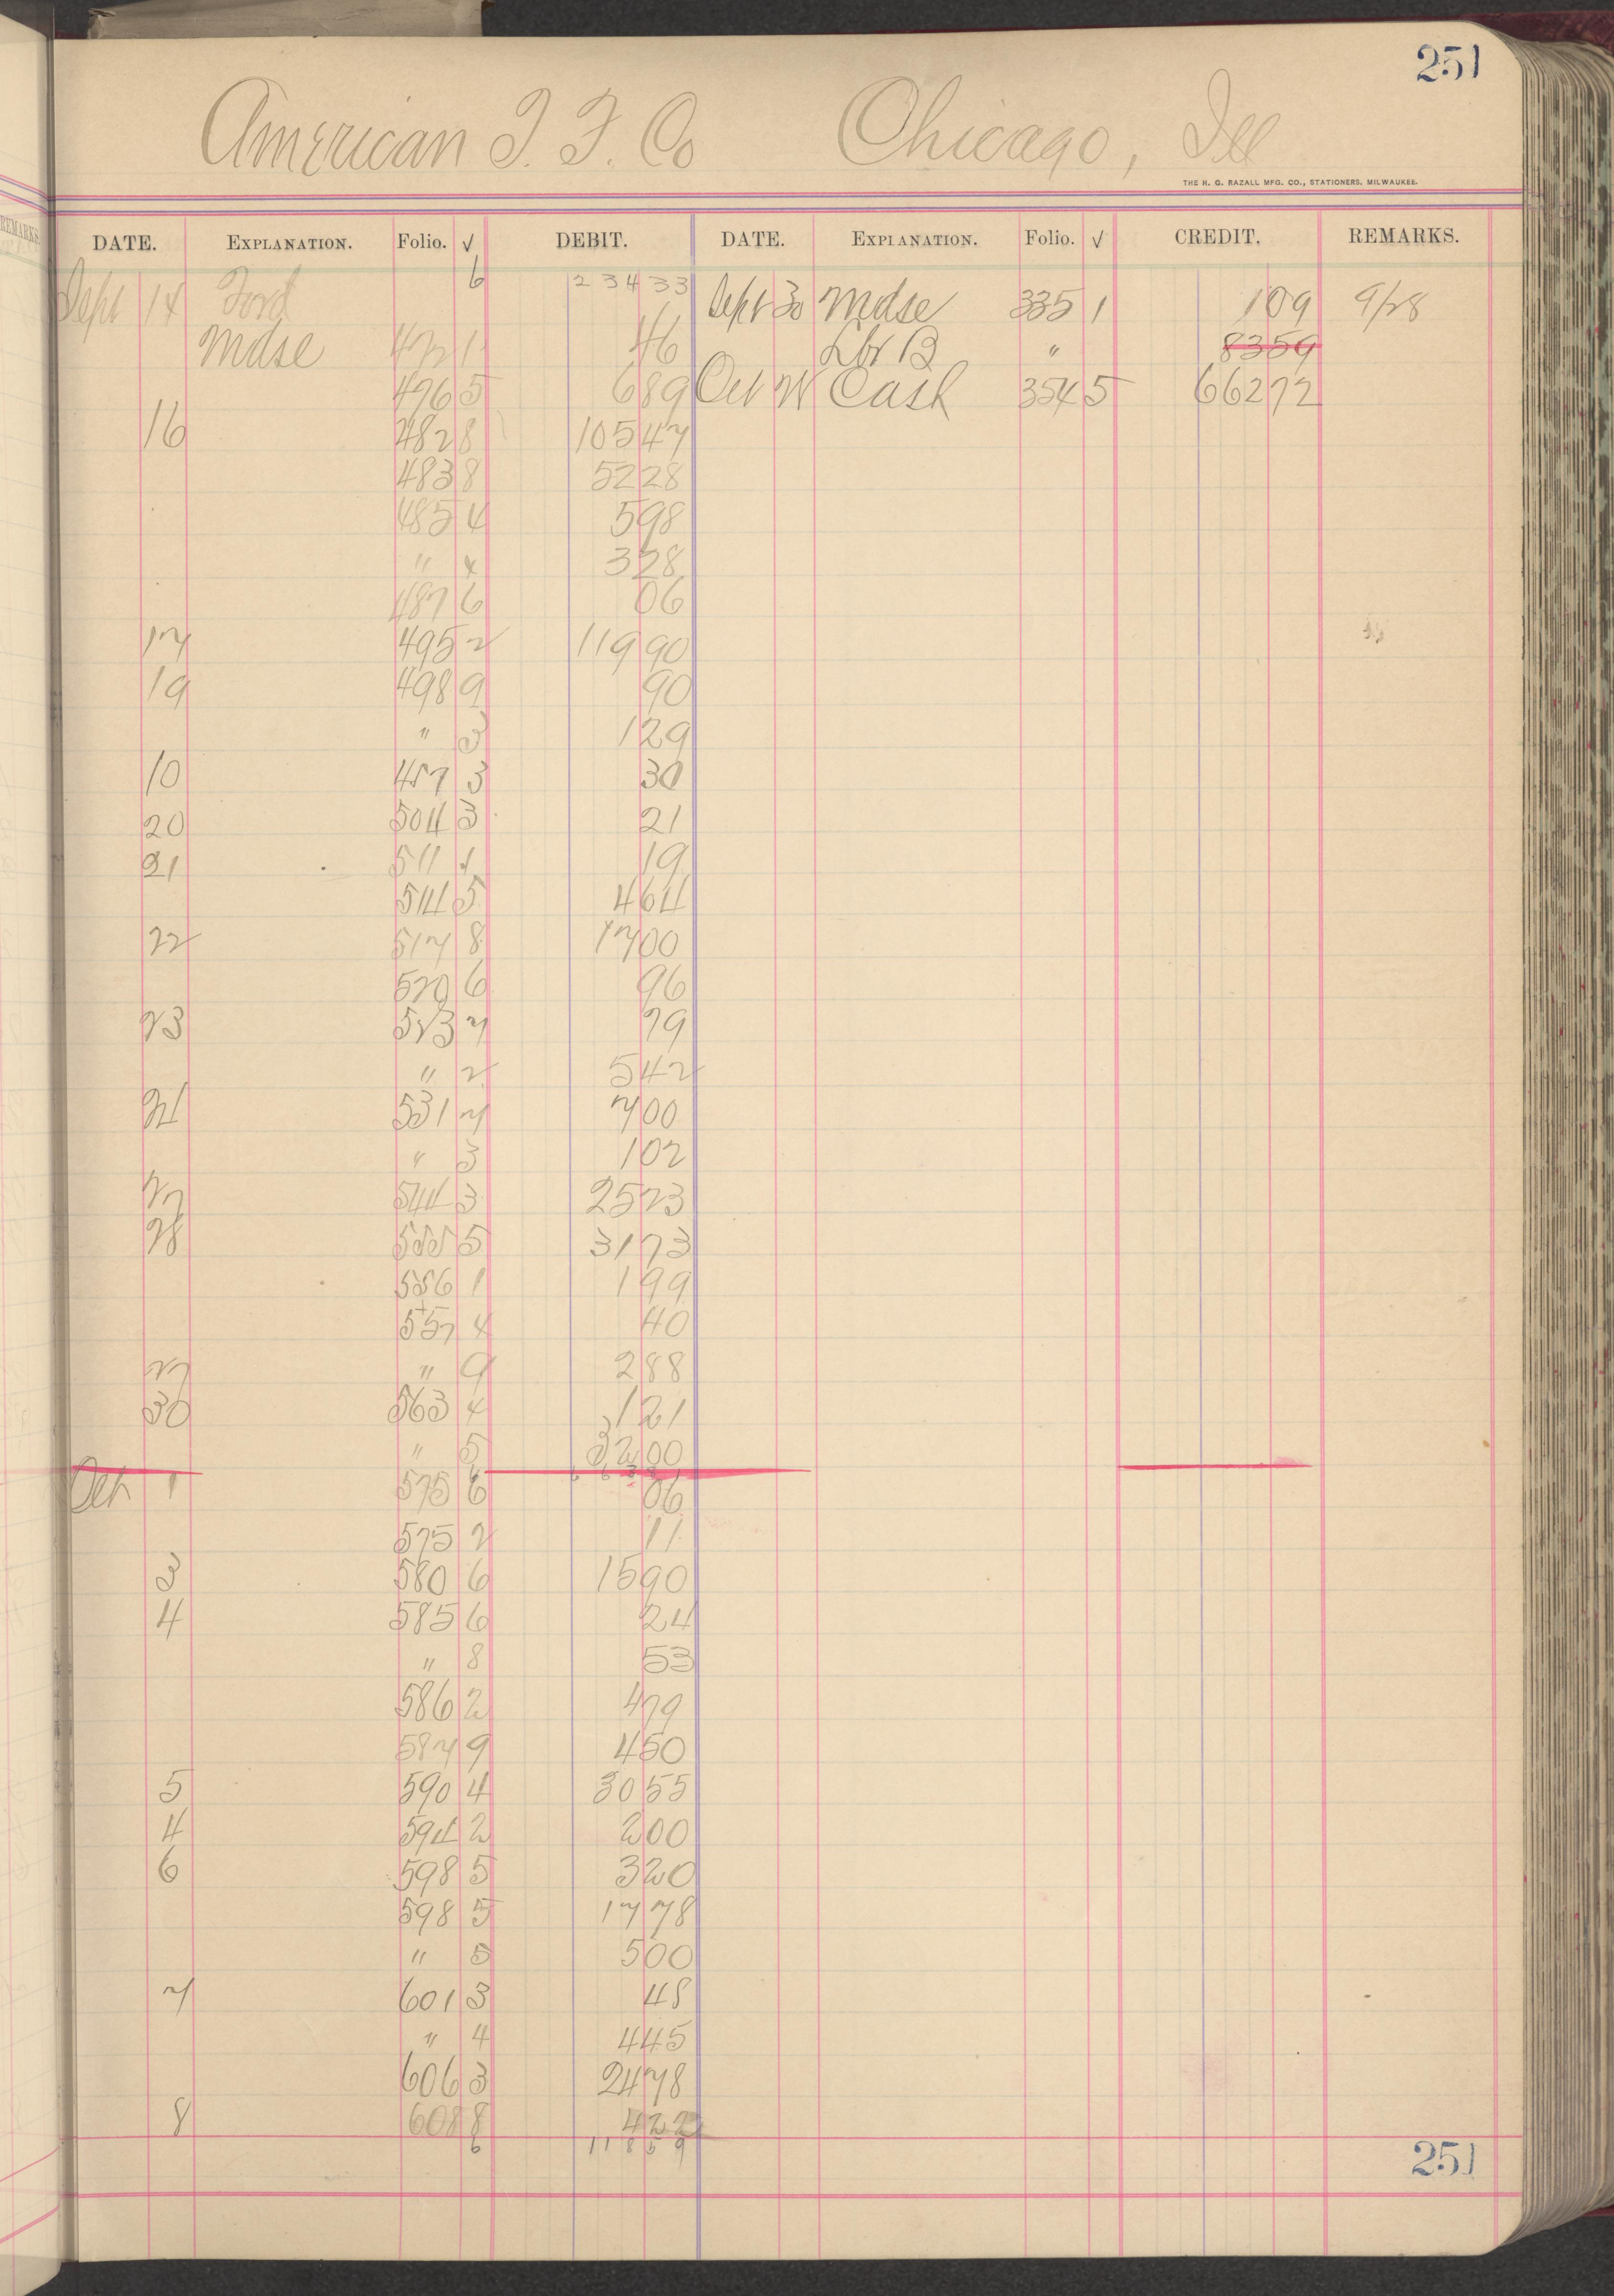 251
American T. F. Co Chicago, Ill
THE H. G. RAZALL MFG. CO., STATIONERS, MILWAUKEE.
DATE. EXPLANATION. Folio. √ DEBIT. DATE. EXPLANATION. Folio. √ CREDIT. REMARKS.
Sept 14 Ford 6 234 33 Sept 30 Mdse 335 1 1 09 9/28
Mdse 472 1 46 Lbr B " 83 59
476 5 6 89 Oct Cash 354 5 662 72
16 482 8 105 47
483 8 52 28
485 4 5 98
" 4 3 28
487 6 06
17 495 2 119 90
19 498 9 90
" 3 1 29
10 457 3 30
20 504 3 21
21 511 1 19
514 5 4 64
22 517 8 17 00
520 6 96
23 523 7 79
" 2 5 42
24 531 7 7 00
" 3 1 02
27 544 3 25 73
28 555 5 31 73
556 1 1 99
557 4 40
27 " 9 2 88
30 563 4 1 21
" 5 32 00
Oct 1 575 6 06
575 2 11
3 580 6 15 90
4 585 6 24
" 8 53
586 2 4 79
587 9 4 50
5 590 4 30 55
4 594 2 2 00
6 598 5 3 20
598 5 17 78
" 5 5 00
7 601 3 48
" 4 4 45
606 3 24 78
8 608 8 4 22
6 118 59
251